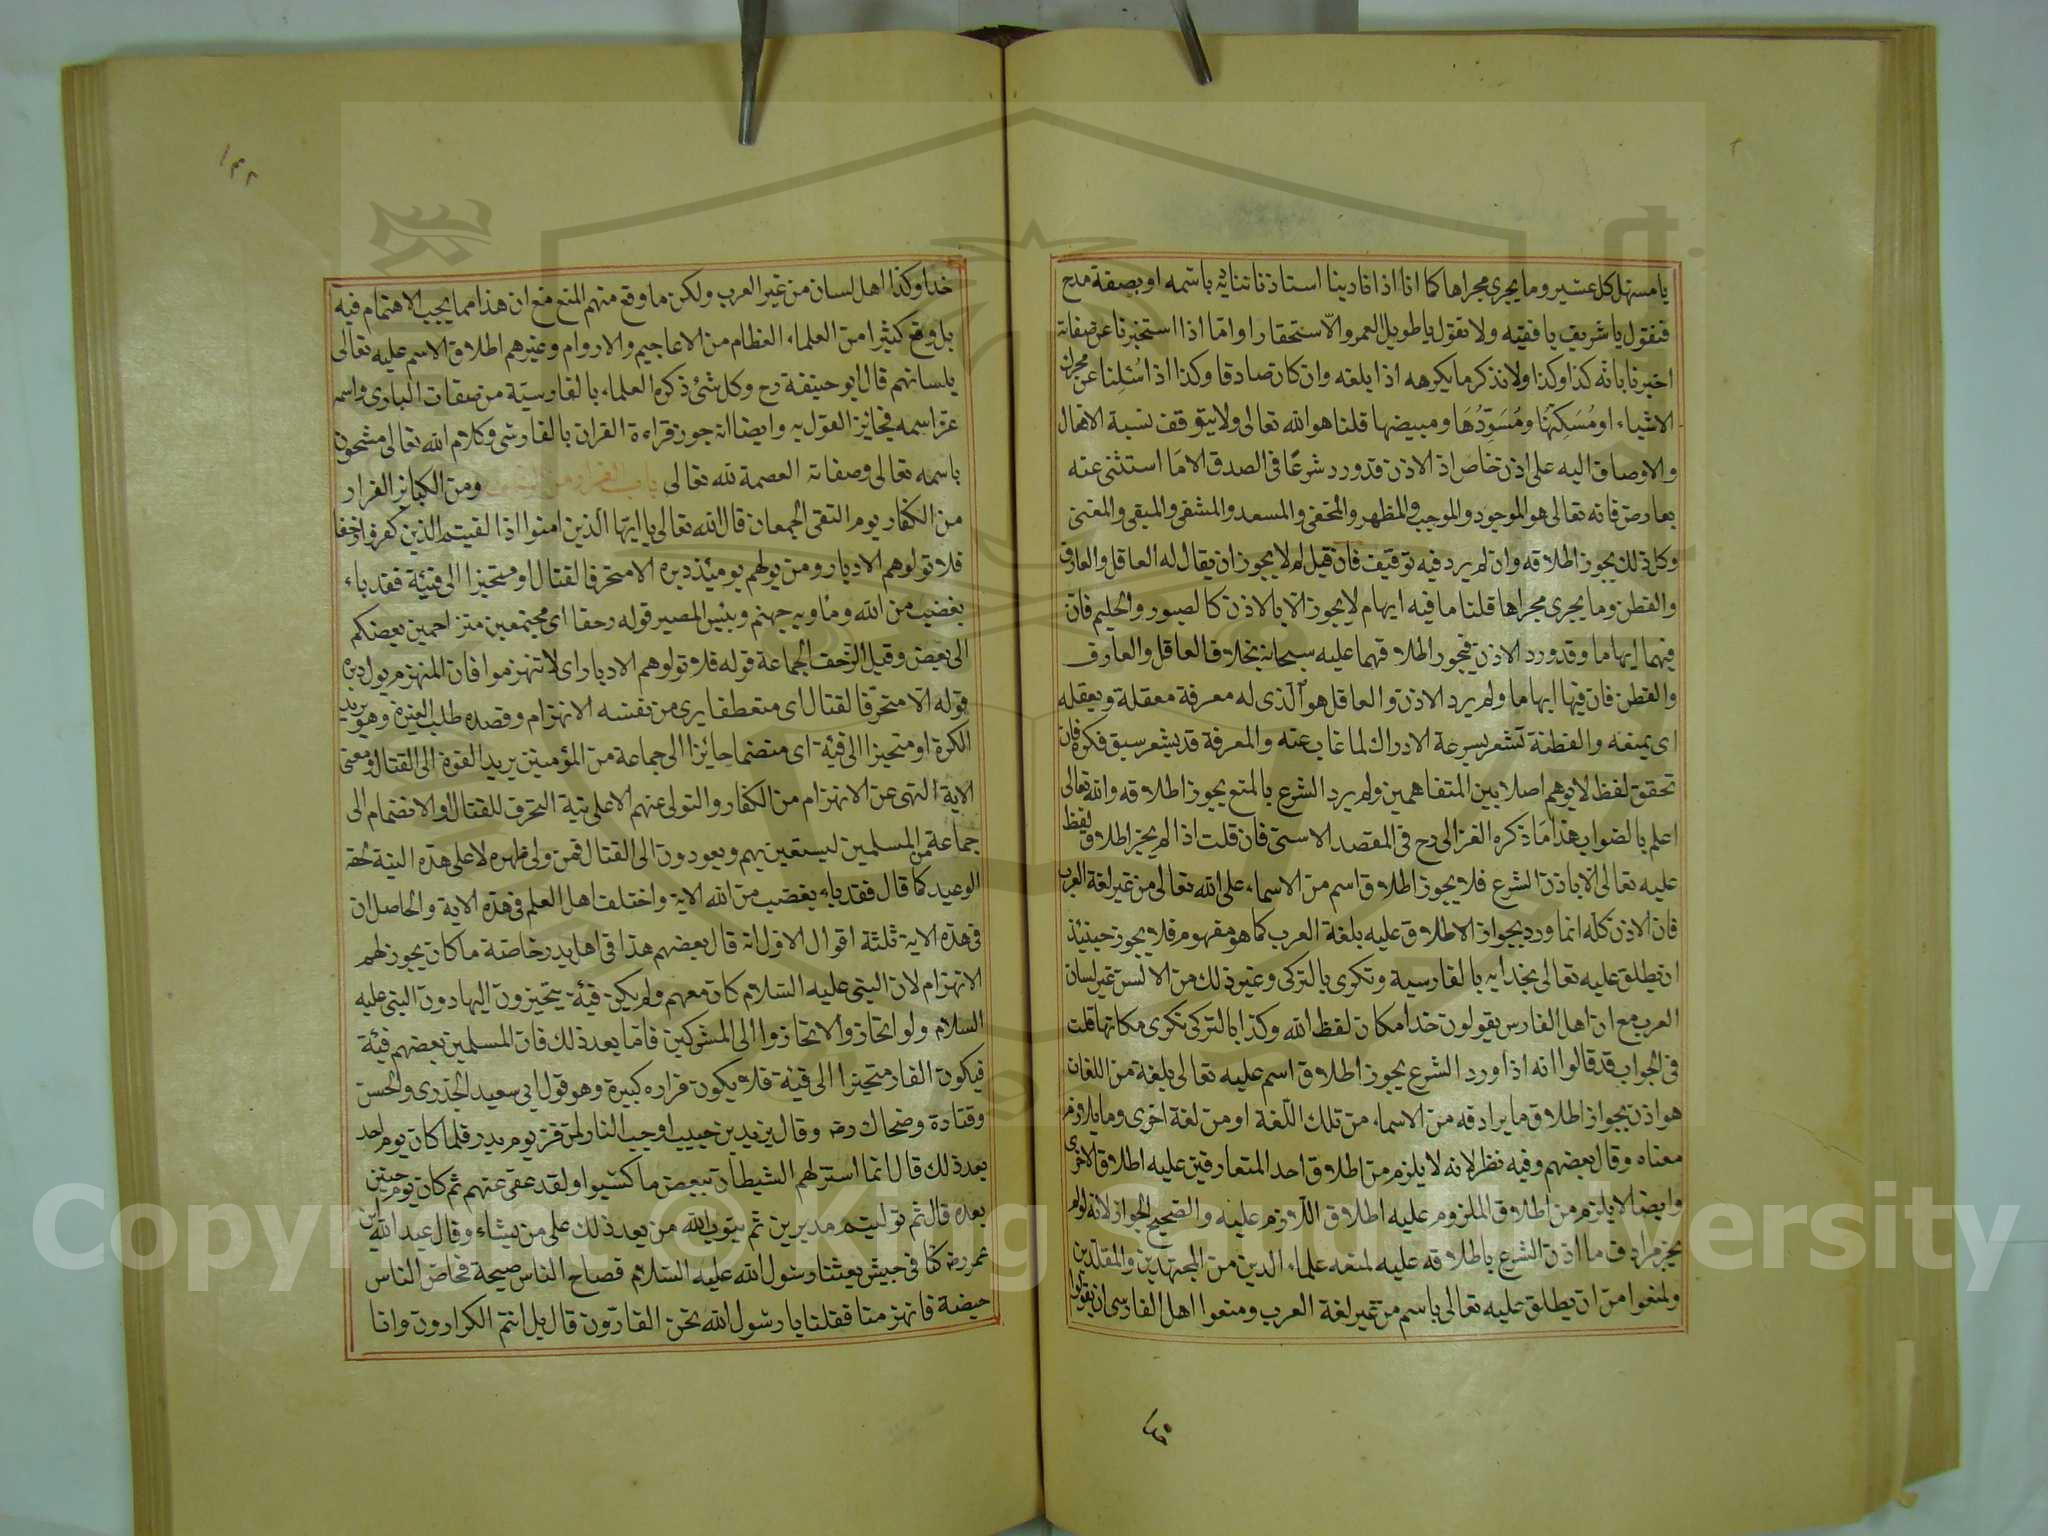 يا مسهل كل عسير وما يجرى مجراها كما انا اذا نادينا استاذنا تناديه باسمه او بصفة مدح
فنقول يا شريف يا فقيه ولا نقول يا طويل العمر والاستحقار او اما اذا استخبرنا عن صفاته
اخبرنا بانه كذا وكذا ولا نذكر ما يكرهه اذا بلغه وان كان صادقا وكذا اذا سُئِلنا عن محرك
الاشياء او مُسَكِّنها ومُسَوِّدُهَا ومبيضها قلنا هو الله تعالى ولا يتوقف نسبة الافعال
والاوصاف اليه على اذن خاص اذ الاذن قد ورد شرعًا فى الصدق الا مَا استثنى عنه
بعارض فانه تعالى هو الموجود والموجب والمظهر والمخفى والمسعد والمشقى والمبقى والمغنى
وكل ذلك يجوز اطلاقه وان لم يرد فيه توقيف فان قيل لم لا يجوز ان يقال له العاقل والعارف
والفطن وما يجرى مجراها قلنا ما فيه ايهام لا يجوز الا بالاذن كالصبور والحليم فان
فيهما ايهاما وقد ورد الاذن فيجوز اطلاقهما عليه سبحانه بخلاف العاقل والعارف
والفطن فان فيها ايهاما ولم يرد الاذن والعاقل هو الذى له معرفة معقلة وبعقله
اى يمنعه والفطنة تشعر بسرعة الادراك لما غاب عنه والمعرفة قد يشعر سبق فكرة فان
تحقق لفظ لا يوهم اصلا بين المتفاهمين ولم يرد الشرع بالمنع يجوز اطلاقه والله تعالى
اعلم بالصواب هذا مَا ذكره الغزالى رح فى المقصد الاسنى فان قلت اذا لم يجز اطلاق لفظ
عليه تعالى الا باذن الشرع فلا يجوز اطلاق اسم من الاسماء على الله تعالى من غير لغة العرب
فان الاذن كله انما ورد بجواز الاطلاق عليه بلغة العرب كما هو مفهوم فلا يجوز حينئذ
ان يطلق عليه تعالى بخدايه بالفارسية وتكرى بالتركى وغير ذلك من الالسن غير لسان
العرب مع ان اهل الفارس يقولون خدا مكان لفظ الله وكذا بالتركى تكرى مكانها قلت
فى الجواب قد قالوا انه اذا ورد الشرع يجوز اطلاق اسم عليه تعالى بلغة من اللغات
هو اذن بجواز اطلاق ما يرادفه من الاسماء من تلك اللغة او من لغة اخرى وما يلازم
معناه وقال بعضهم وفيه نظر لانه لا يلزم من اطلاق احد المتعارفين عليه اطلاق الاخرى
وايضا لا يلزم من اطلاق الملزوم عليه اطلاق اللازم عليه والصحيح الجواز لانه لو لم
يجز مرادف ما اذن الشرع باطلاقه عليه لمنعه علماء الدين من المجتهدين والمقلدين
ولمنعوا من ان يطلق عليه تعالى باسم من غير لغة العرب ومنعوا اهل الفارسى ان يقولوا
خدا وكذا اهل لسان من غير العرب ولكن ما وقع منهم المنع مع ان هذا مما يجب الاهتمام فيه
بل وقع كثيرا من العلماء العظام من الاعاجيم والاروام وغيرهم اطلاق الاسم عليه تعالى
بلسانهم قال ابو حنيفة رح وكل شئ ذكره العلماء بالفارسيّة من صفات البارى واسمه
عز اسمه فجائز القول به وايضا انه جوز قراءة القران بالفارسى وكلام الله تعالى مشحون
باسمه تعالى وصفاته العصمة لله تعالى باب الفرار من الزحف ومن الكبائر الفرار
من الكفار يوم التقى الجمعان قال الله تعالى يا ايها الذين امنوا اذا لقيتم الذين كفروا زحفا
فلا تولوهم الادبار ومن يولهم يومئذ دبره الا متحرفا لقتال او متحيزا الى فئة فقد باء
بغضب من الله وماويه جهنم وبئس المصير قوله زحفا اى مجتمعين متزاحمين بعضكم
الى بعض وقيل الزحف الجماعة قوله فلا تولوهم الادبار اى لا تنهزموا فان المنهزم يول دبره
قوله الا متحرفا لقتال اى متعطفا يرى من نفسه الانهزام وقصده طلب الغرة وهو يريد
الكرة او متحيزا الى فئة اى منضما جائزا الى جماعة من المؤمنين يريد القوة الى القتال ومعنى
الاية النهى عن الانهزام من الكفار والتولى عنهم الا على نية التحرف للقتال والانضمام الى
جماعة من المسلمين ليستعين بهم ويعودون الى القتال فمن ولى ظهره لا على هذه النية لحقه
الوعيد كما قال فقد باء بغضب من الله الاية واختلف اهل العلم فى هذه الاية والحاصل ان
فى هذه الاية ثلثة اقوال الاول انه قال بعضهم هذا فى اهل بدر خاصة ما كان يجوز لهم
الانهزام لان النبى عليه السّلام كان معهم ولم يكن فئة يتحيزون اليها دون النبى عليه
السلام ولو انحازوا لانحازوا الى المشركين فاما بعد ذلك فان المسلمين بعضهم فئة
فيكون الفار متحيزا الى فئة فلا يكون فراره كبيرة وهو قول ابى سعيد الخدرى والحسن
وقتادة وضحاك رضه وقال يزيد بن حبيب اوجب النار لمن فر يوم بدر فلما كان يوم احد
بعد ذلك قال انما استزلهم الشيطان ببعض ما كسبوا ولقد عفى عنهم ثم كان يوم حنين
بعده قال ثم توليتم مدبرين ثم يتوب الله من بعد ذلك على من يشاء وقال عبد الله بن
عمر رضه كنا فى جيش بعثنا رسول الله عليه السّلام فصاح الناس صيحة فخاص الناس
حيضة فانهزمنا فقلنا يا رسول الله نحن الفارون قال بل انتم الكرارون وانا
١٣٢
Copyright © King Saud University